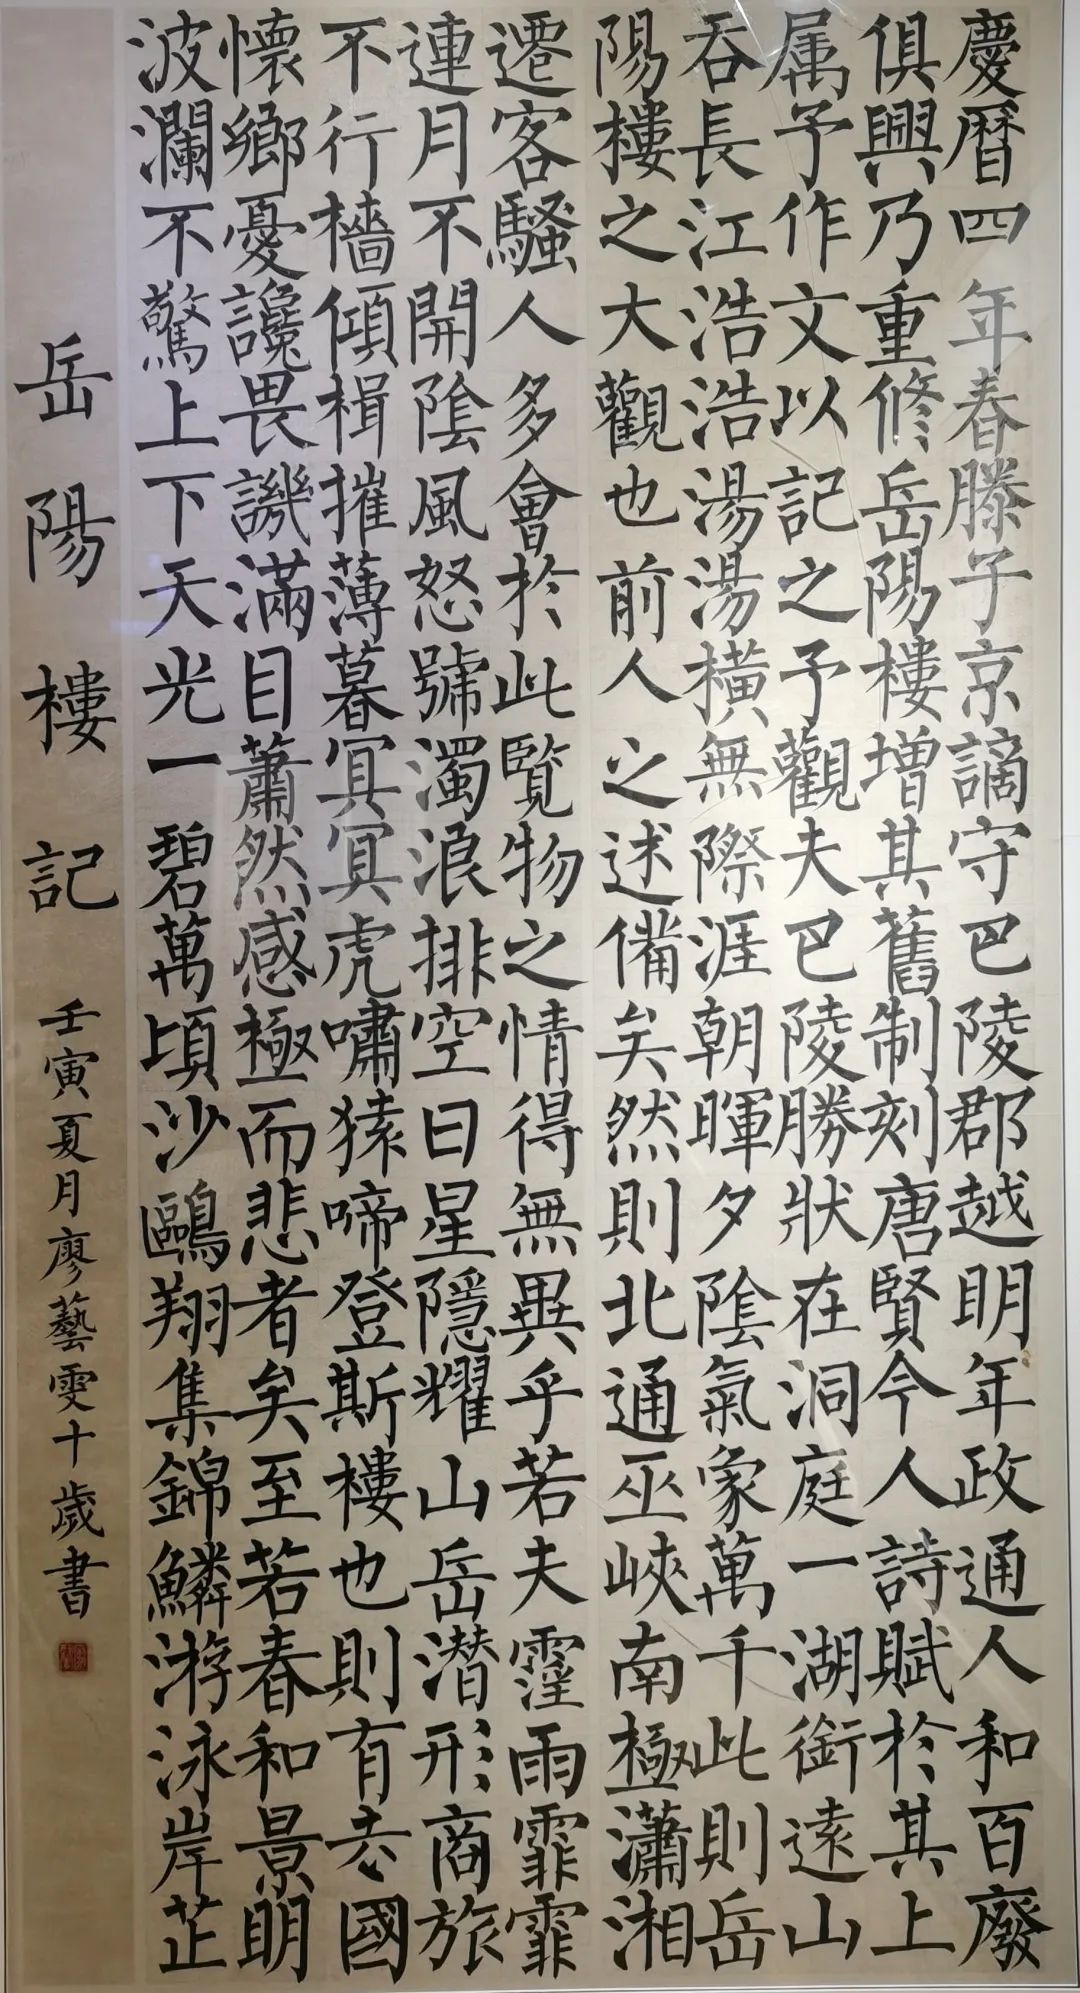 慶曆四年春滕子京謫守巴陵郡越明年政通人和百廢
俱興乃重修岳陽樓增其舊制刻唐賢今人詩賦於其上
属予作文以記之予觀夫巴陵勝狀在洞庭一湖銜遠山
吞長江浩浩湯湯橫無際涯朝暉夕陰氣象萬千此則岳
陽樓之大觀也前人之述備矣然則北通巫峽南極瀟湘
遷客騷人多會於此覽物之情得無異乎若夫霪雨霏霏
連月不開陰風怒號濁浪排空日星隱耀山岳潛形商旅
不行檣傾楫摧薄暮冥冥虎嘯猿啼登斯樓也則有去國
懷鄉憂讒畏譏滿目蕭然感極而悲者矣至若春和景明
波瀾不驚上下天光一碧萬頃沙鷗翔集錦鱗游泳岸芷
岳陽樓記
壬寅夏月廖藝雯十歲書